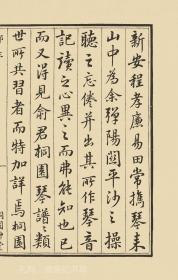 新安程孝廉易田常攜琴来
山中為余彈陽關平沙之操
聽之忘倦并出其所作琴音
記讀之心異之而弗能知也已
而又得見俞君桐園琴譜之類
世所共習者而特加詳焉桐園